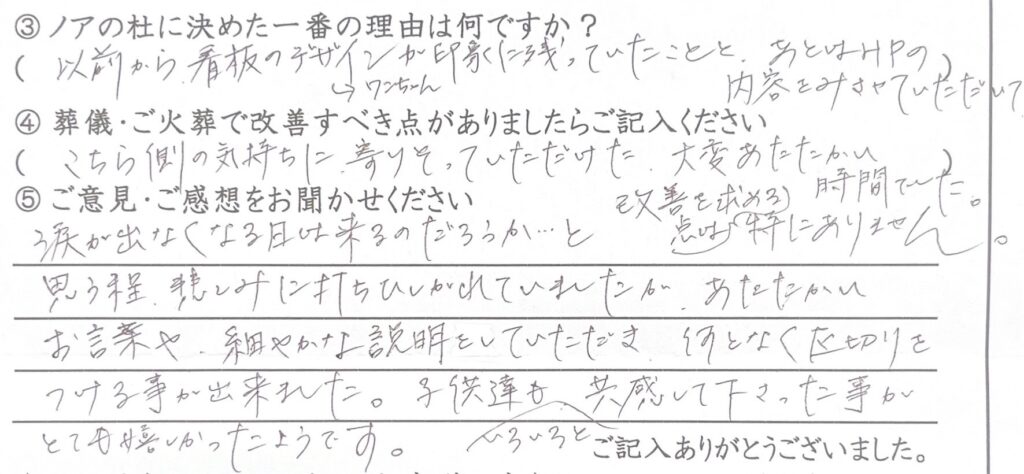 ③ ノアの杜に決めた一番の理由は何ですか？
( 以前から、看板のデザインが印象に残っていたことと、あとはHPの )
→ワンちゃん
内容をみさせていただいて
④ 葬儀・ご火葬で改善すべき点がありましたらご記入ください
( こちら側の気持ちに寄りそっていただけた、大変あたたかい )
時間でした。
⑤ ご意見・ご感想をお聞かせください
改善を求める
点は特にありません。
涙が出なくなる日は来るのだろうか…と
思う程、悲しみに打ちひしがれていましたが、あたたかい
お言葉や、細やかな説明をしていただき、何となく区切りを
つける事が出来ました。子供達も、共感して下さった事が
いろいろと
とても嬉しかったようです。
ご記入ありがとうございました。